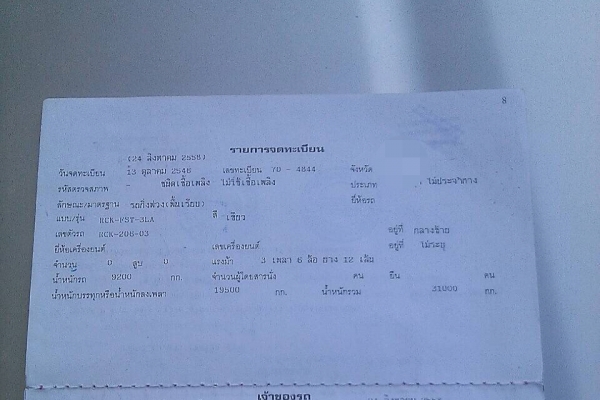 8
รายการจดทะเบียน
(24 สิงหาคม 2558)
วันจดทะเบียน 13 ตุลาคม 2546 เลขทะเบียน 70 - 4844 จังหวัด
รหัสตรวจสภาพ - ชนิดเชื้อเพลิง ไม่ใช้เชื้อเพลิง ประเภท ไม่ประจำทาง
ลักษณะ/มาตรฐาน รถกึ่งพ่วง(พื้นเรียบ) ยี่ห้อรถ
แบบ/รุ่น RCK-FST-3LA สี เขียว
เลขตัวรถ RCK-206-03 อยู่ที่ กลางซ้าย
ยี่ห้อเครื่องยนต์ เลขเครื่องยนต์ อยู่ที่ ไม่ระบุ
จำนวน 0 สูบ 0 แรงม้า 3 เพลา 6 ล้อ ยาง 12 เส้น
น้ำหนักรถ 9200 กก. จำนวนผู้โดยสารนั่ง คน ยืน คน
น้ำหนักบรรทุกหรือน้ำหนักลงเพลา 19500 กก. น้ำหนักรวม 31000 กก.
เจ้าของรถ